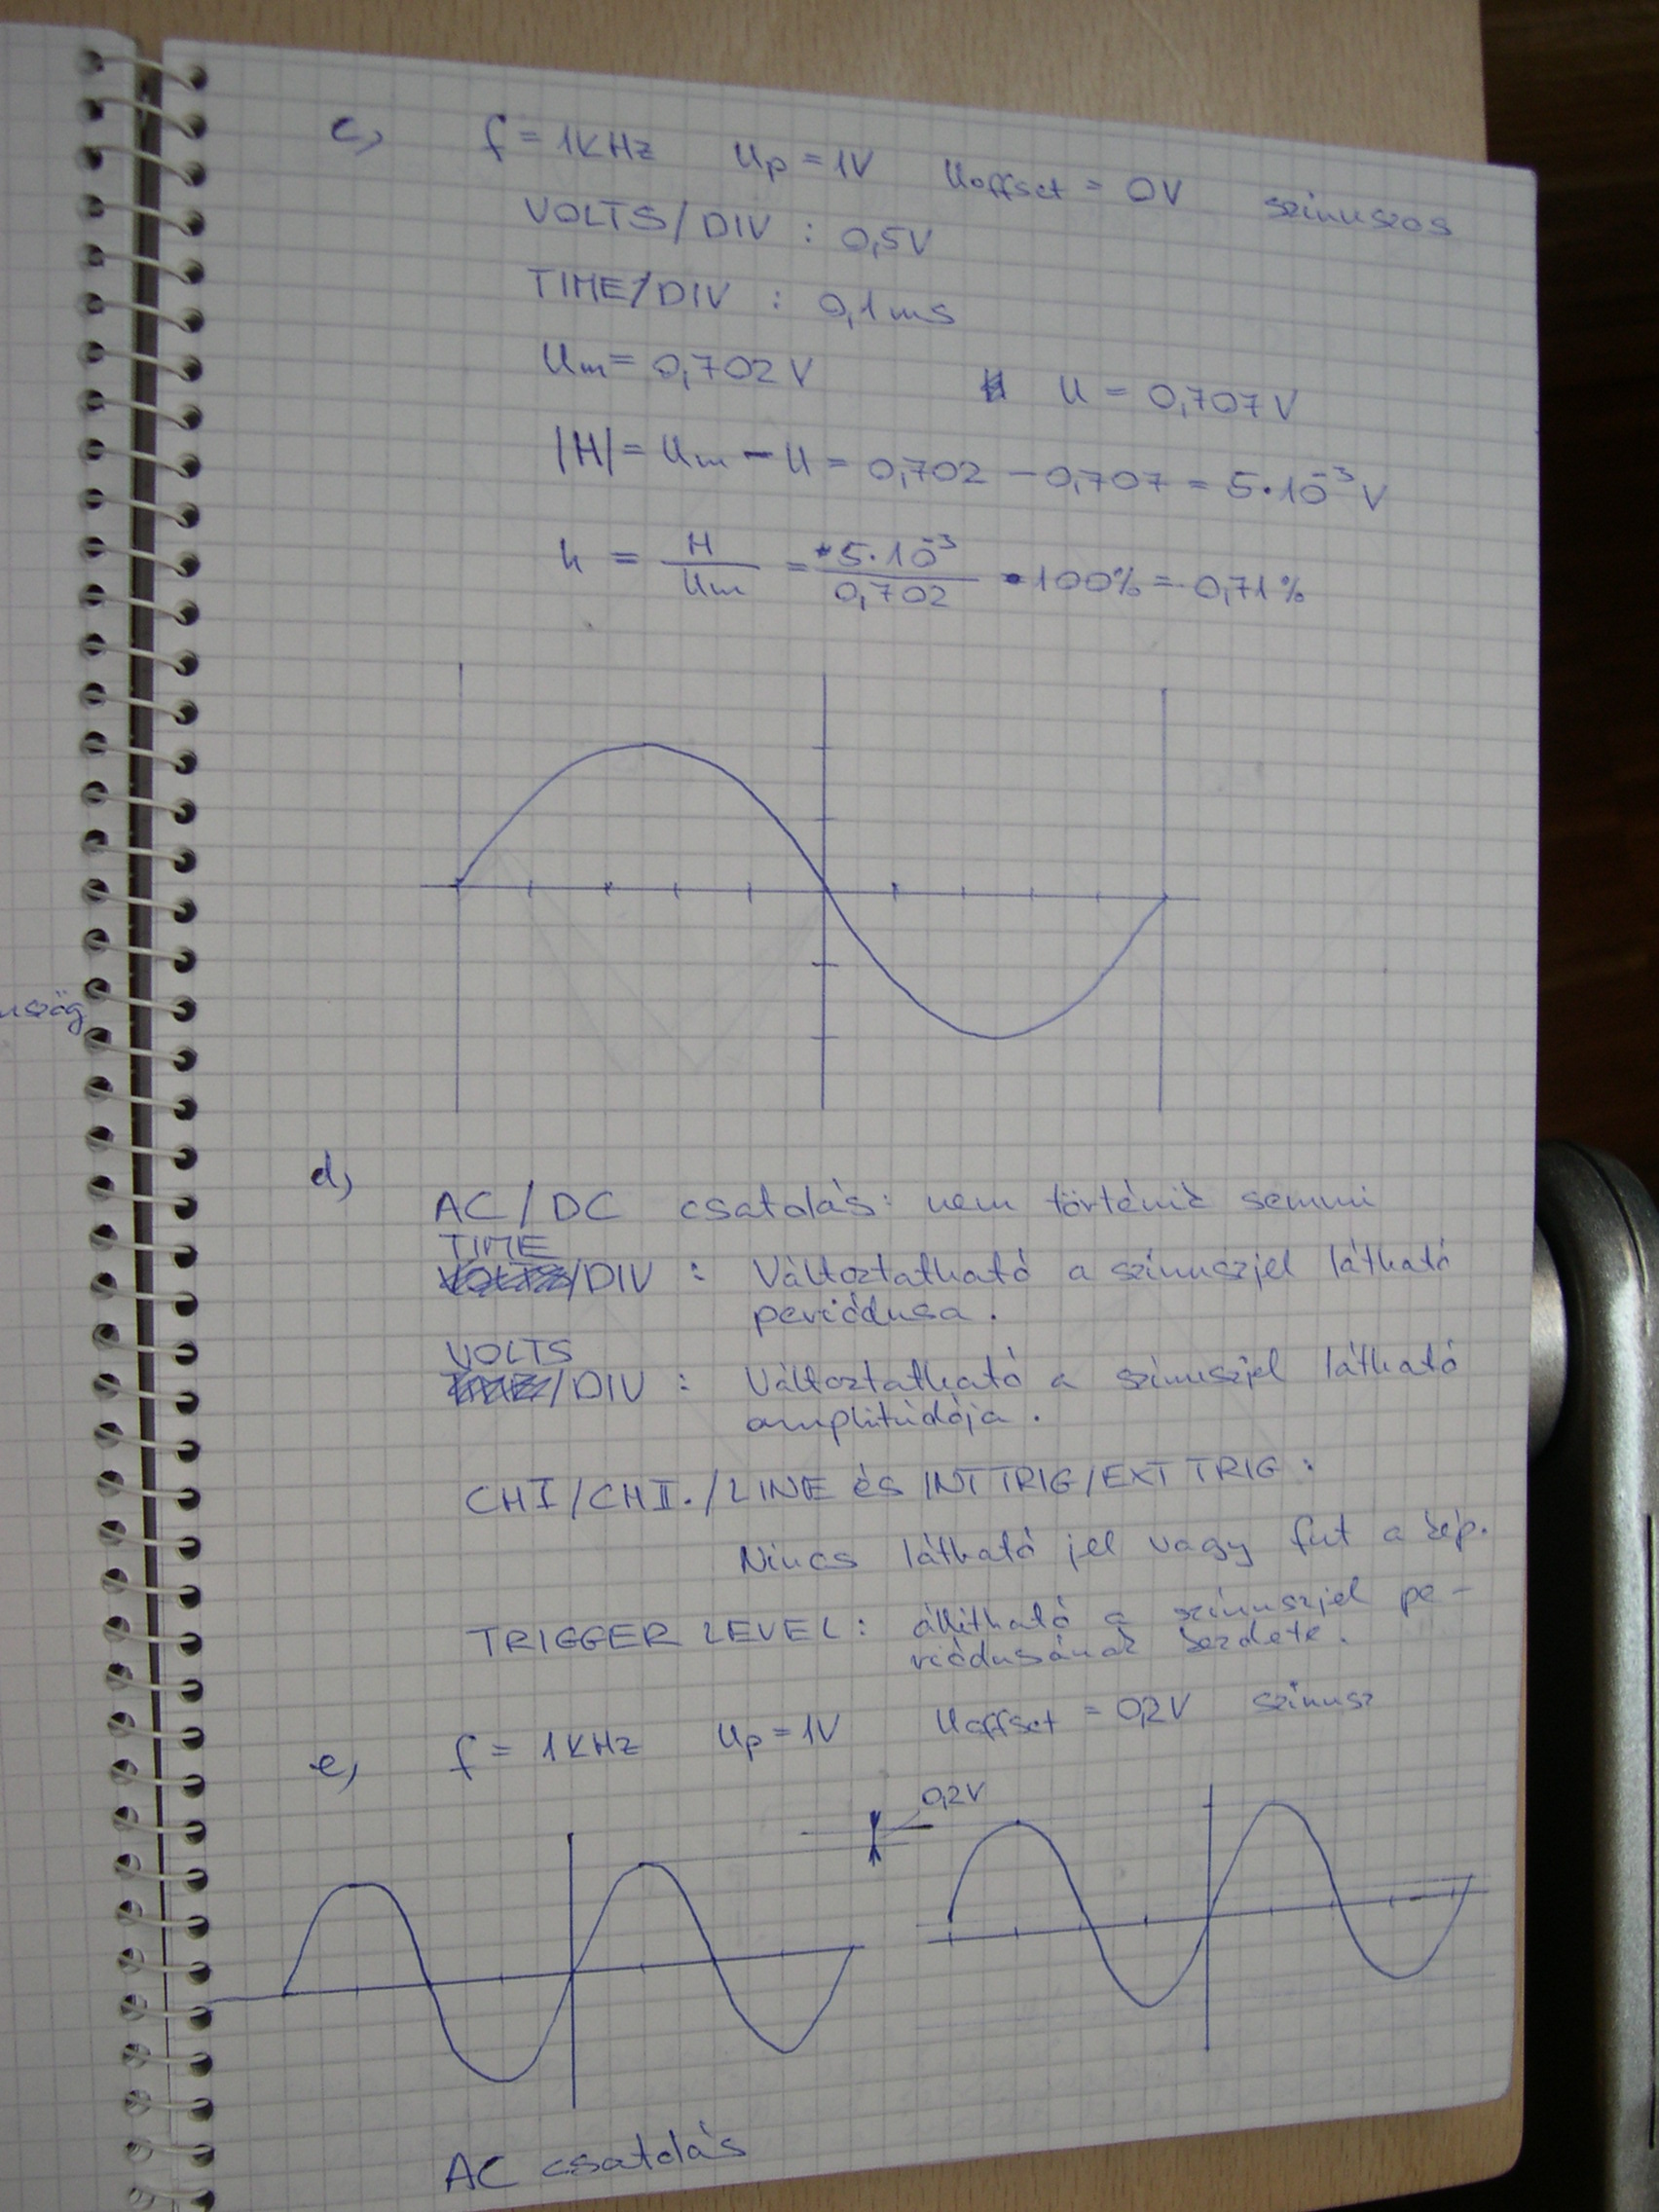 c, f = 1KHz Up = 1V Uoffset = 0V szinuszos
VOLTS/DIV : 0,5V
TIME/DIV : 0,1ms
Um = 0,702V U = 0,707V
|H| = Um - U = 0,702 - 0,707 = 5·10⁻³ V
h = H/Um = 5·10⁻³/0,702 · 100% = 0,71%
d,
AC/DC csatolás: nem történik semmi
TIME
/DIV : Változtatható a szinuszjel látható
periódusa.
VOLTS
/DIV : Változtatható a szinuszjel látható
amplitúdója.
CHI/CHII./LINE és INT TRIG/EXT TRIG :
Nincs látható jel vagy fut a kép.
TRIGGER LEVEL : állítható a szinuszjel pe-
riódusának kezdete.
e, f = 1KHz Up = 1V Uoffset = 0,2V szinusz
0,2V
AC csatolás